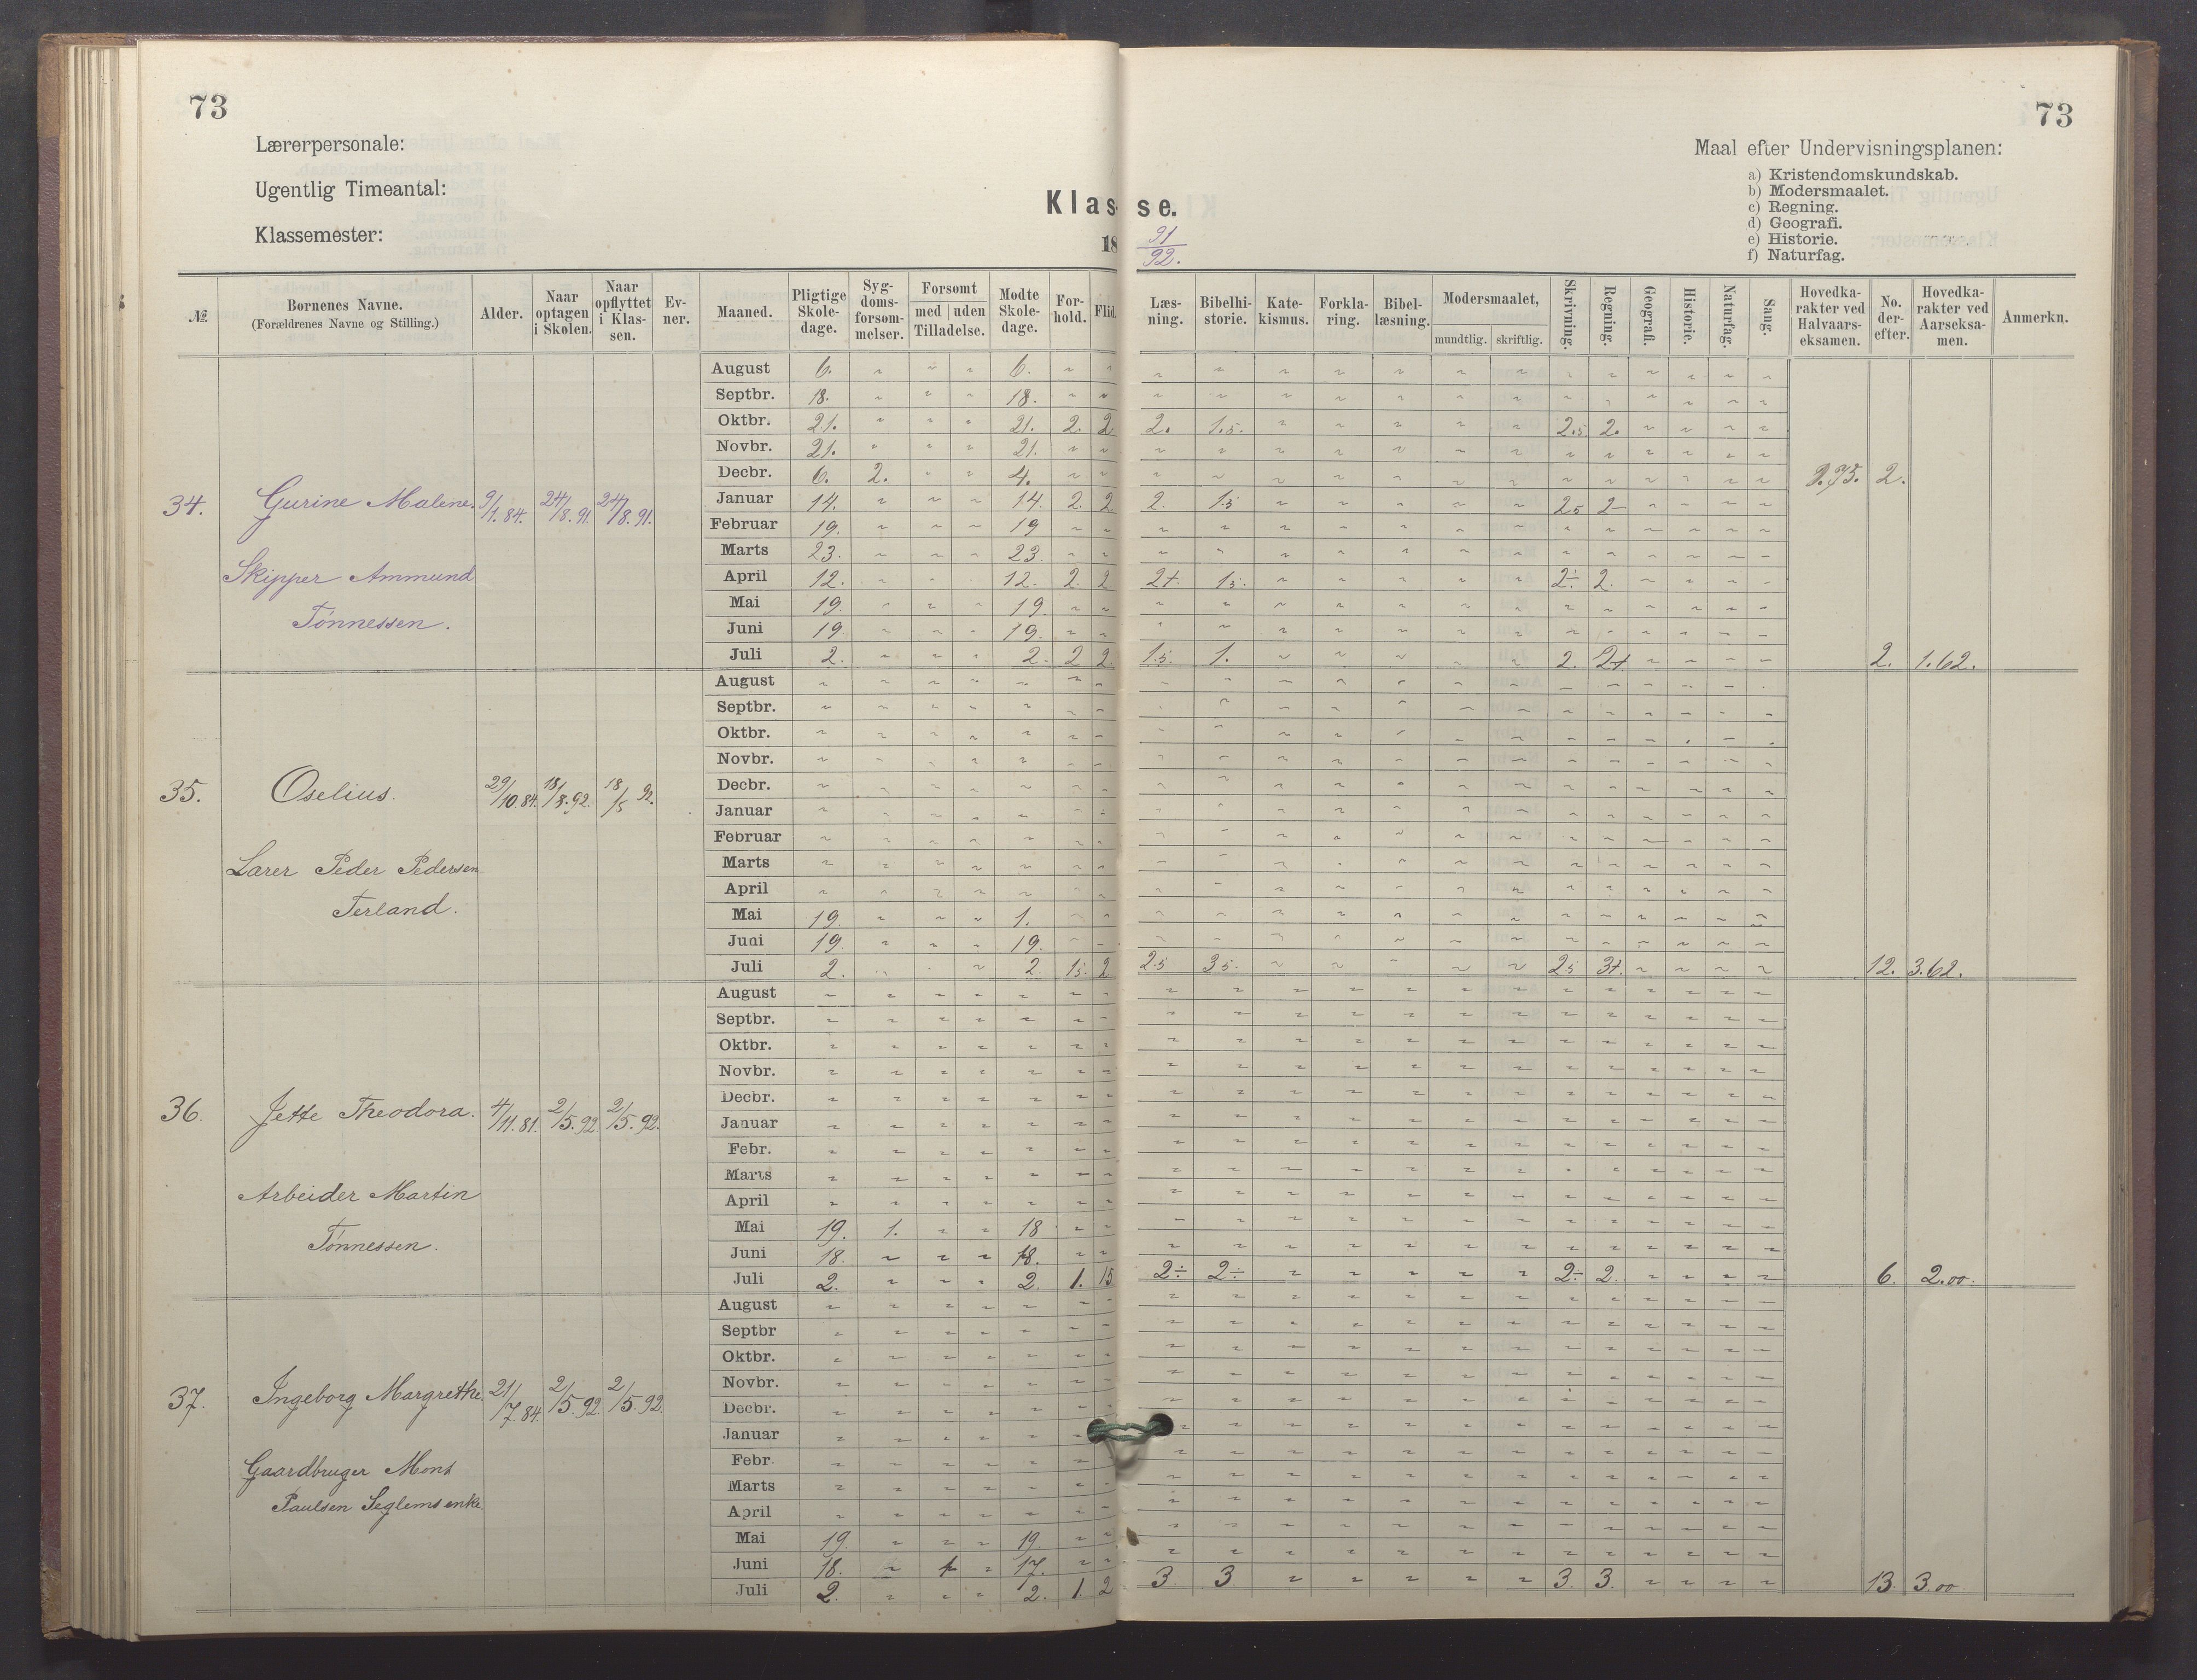 73
73
Lærerpersonale:
Ugentlig Timeantal:
Klassemester:
Klasse.
18 91/92.
Maal efter Undervisningsplanen:
a) Kristendomskundskab.
b) Modersmaalet.
c) Regning.
d) Geografi.
e) Historie.
f) Naturfag.
№ Børnenes Navne. (Forældrenes Navne og Stilling.) Alder. Naar optagen i Skolen. Naar opflyttet i Klassen. Evner. Maaned. Pligtige Skoledage. Sygdomsforsømmelser. Forsømt med uden Tilladelse. Mødte Skoledage. Forhold. Flid. Læsning. Bibelhistorie. Katekismus. Forklaring. Bibellæsning. Modersmaalet, mundtlig. skriftlig. Skrivning. Regning. Geografi. Historie. Naturfag. Sang. Hovedkarakter ved Halvaarseksamen. No. derefter. Hovedkarakter ved Aarseksamen. Anmerkn.
34. Gurine Malene. 9/1.84. 24/8.91. 24/8.91.
Skipper Ammund
Tönnessen.
August 6. 6.
Septbr. 18. 18.
Oktbr. 21. 21. 2. 2 2. 1.5. 2.5 2.
Novbr. 21. 21.
Decbr. 6. 2. 4. 2.
Januar 14. 14. 2. 2 2. 1.5 25 2-
Februar 19. 19
Marts 23. 23
April 12. 12. 2. 2 2+ 15. 2÷ 2.
Mai 19. 19
Juni 19 19.
Juli 2. 2. 2 2 1.5. 1. 2. 2+ 2. 1.62.
35. Oselius. 29/10.84. 18/8.92. 18/5 92.
Lærer Peder Pedersen
Terland.
August
Septbr.
Oktbr.
Novbr.
Decbr.
Januar
Februar
Marts
April
Mai 19. 1.
Juni 19. 19.
Juli 2. 2. 15. 2 2.5 35. 25 3+. 12. 3.62.
36. Jette Theodora. 4/11.81. 2/5.92 2/5.92.
Arbeider Martin
Tönnessen.
August
Septbr.
Oktbr.
Novbr.
Decbr.
Januar
Febr.
Marts
April
Mai 19. 1. 18
Juni 18. 18.
Juli 2. 2. 1. 15 2÷ 2÷ 2÷ 2. 6. 2.00.
37. Ingeborg Margrethe. 21/7.84. 2/5.92 2/5.92.
Gaardbruger Mons
Paulsen Seglems enke.
August
Septbr
Oktbr.
Novbr.
Decbr.
Januar
Febr.
Marts
April
Mai 19. 19.
Juni 18. 1 17.
Juli 2. 2. 1. 2 3. 3 3. 3. 13. 3.00